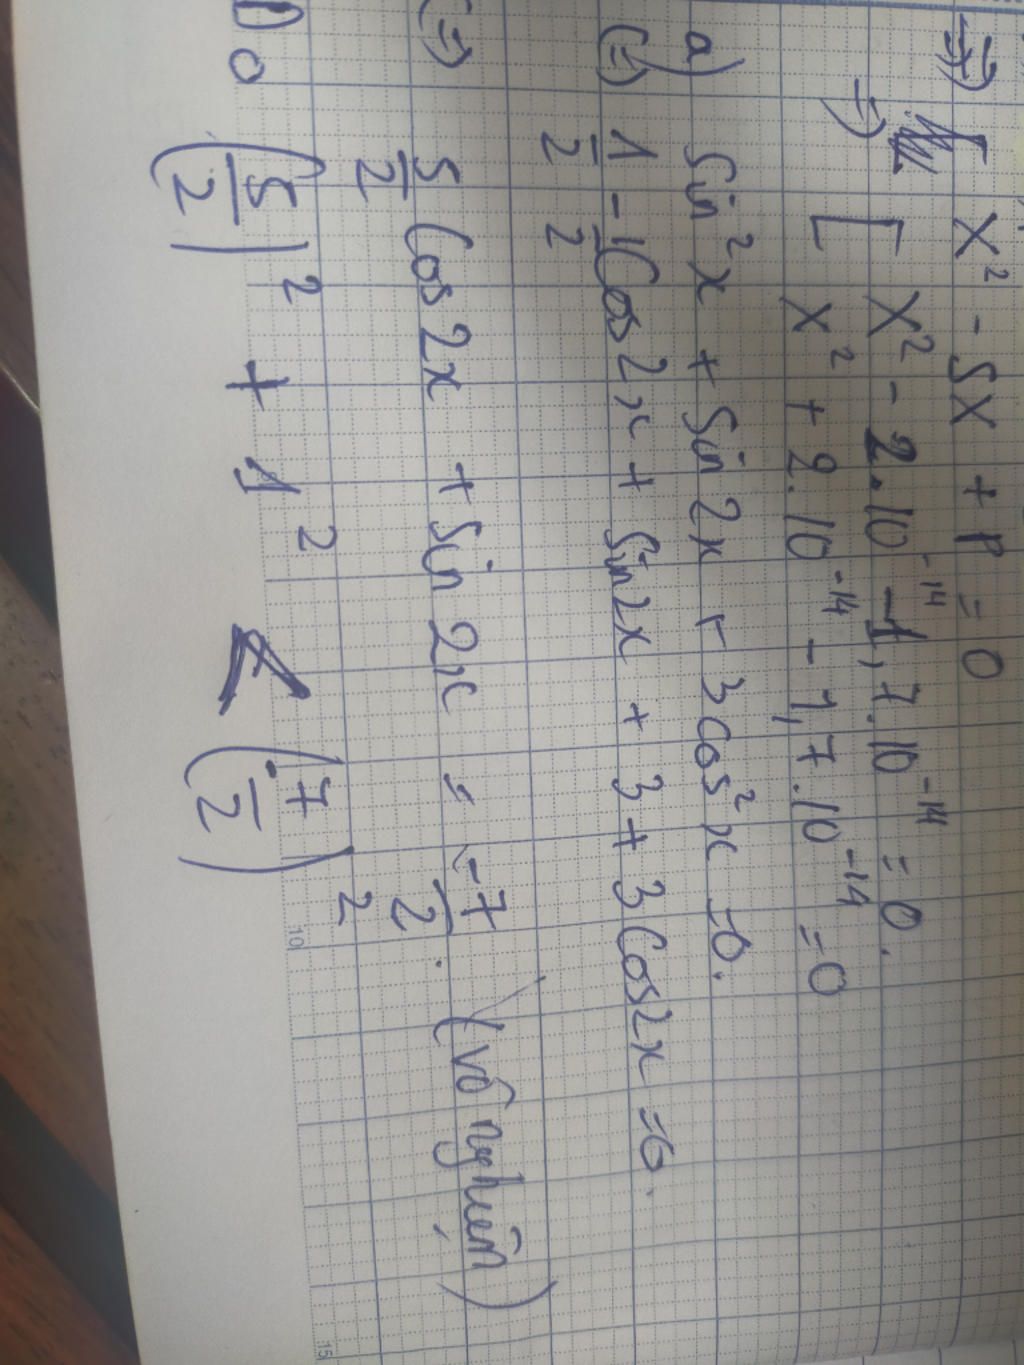 => X² - SX + P = 0
=> [ X² - 2.10⁻¹⁴ - 1,7.10⁻¹⁴ = 0.
X² + 2.10⁻¹⁴ - 1,7.10⁻¹⁴ = 0
a) Sin²x + Sin2x + 3cos²x = 0.
(=) 1/2 - 1/2 Cos2x + Sin2x + 3 + 3Cos2x = 0.
(=) 5/2 Cos2x + Sin2x = -7/2. (vô nghiệm)
Do (5/2)² + 1² < (7/2)²
10
15